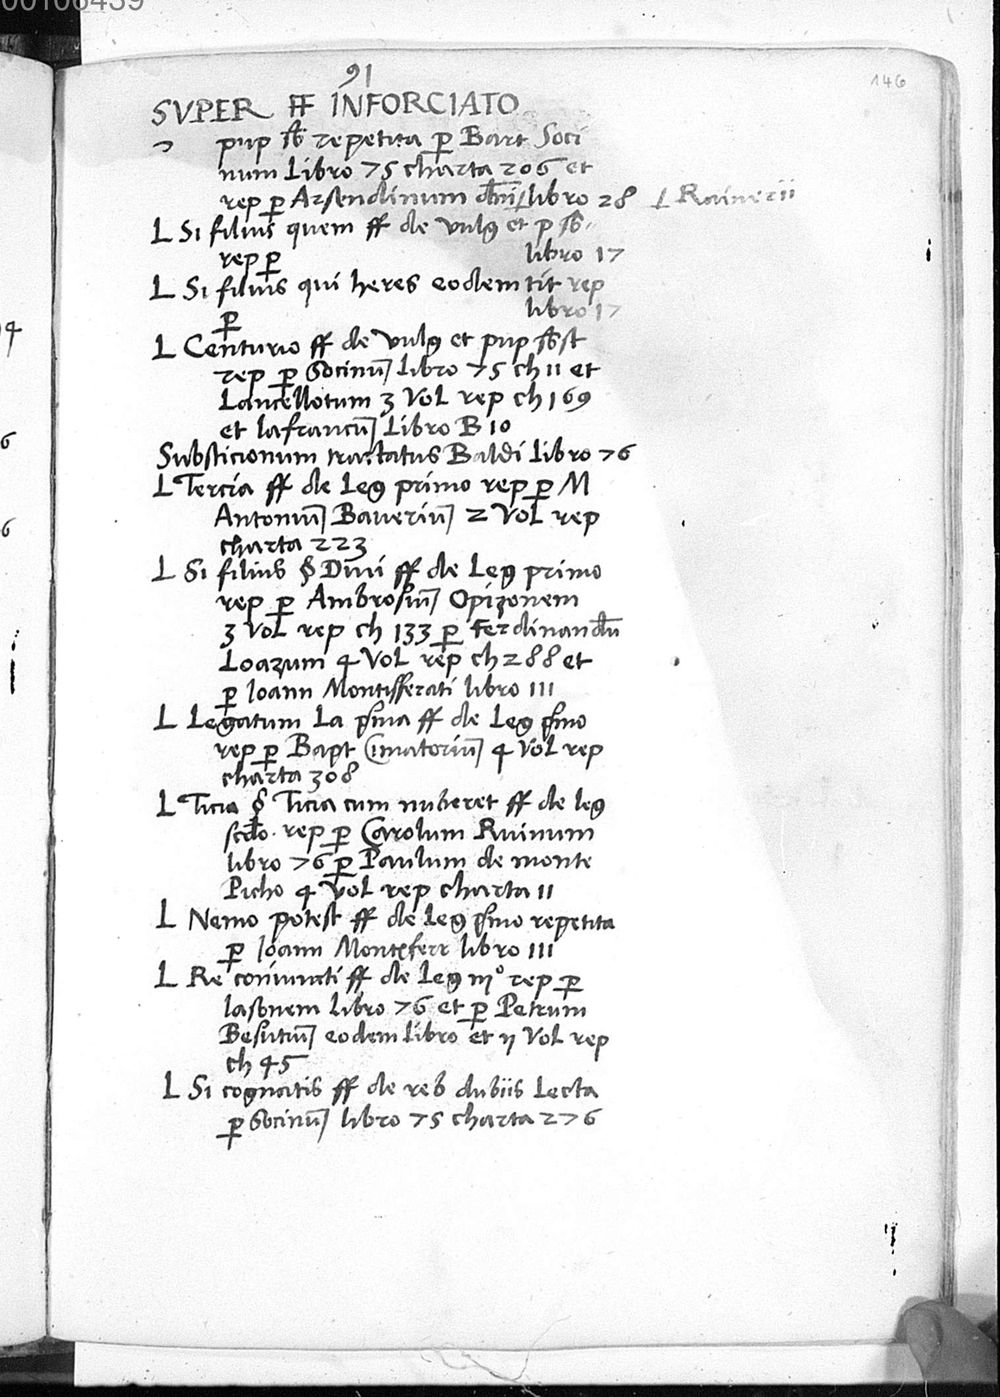 00106439
146
91
SVPER FF INFORCIATO
pup sb repetita p Bart Soci
num Libro 75 charta 206 et
rep p Arsendinum libro 28 L Rainerii
L Si filius quem ff de vulg et p sb
rep p libro 17
L Si filius qui heres eodem tit rep
p libro 17
L Centurio ff de vulg et pup sbst
rep p Socinu libro 75 ch 11 et
Lancellotum 3 Vol rep ch 169
et lafrancu Libro B 10
Substicionum tractatus Baldi Libro 76
L Tercia ff de Leg primo rep p M
Antoniu Baveriu 2 Vol rep
charta 223
L Si filius § Divi ff de Leg primo
rep p Ambrosiu Opizonem
3 Vol rep ch 133 p Ferdinandu
Loazum 4 Vol rep ch 288 et
p Ioann Montisfferati libro III
L Legatum La pma ff de Leg pmo
rep p Bapt Cimatoriu 4 Vol rep
charta 308
L Ticia § Ticia cum nuberet ff de leg
scdo. rep p Carolum Ruinum
libro 76 p Paulum de monte
Picho 4 Vol rep charta 11
L Nemo potest ff de Leg pmo repetita
p Ioann Monteferr libro III
L Re coniuncti ff de Leg IIIº rep p
Iasonem libro 76 et p Petrum
Besutiu eodem libro et II Vol rep
ch 45
L Si cognatis ff de reb dubiis Lecta
p Socinu libro 75 charta 276